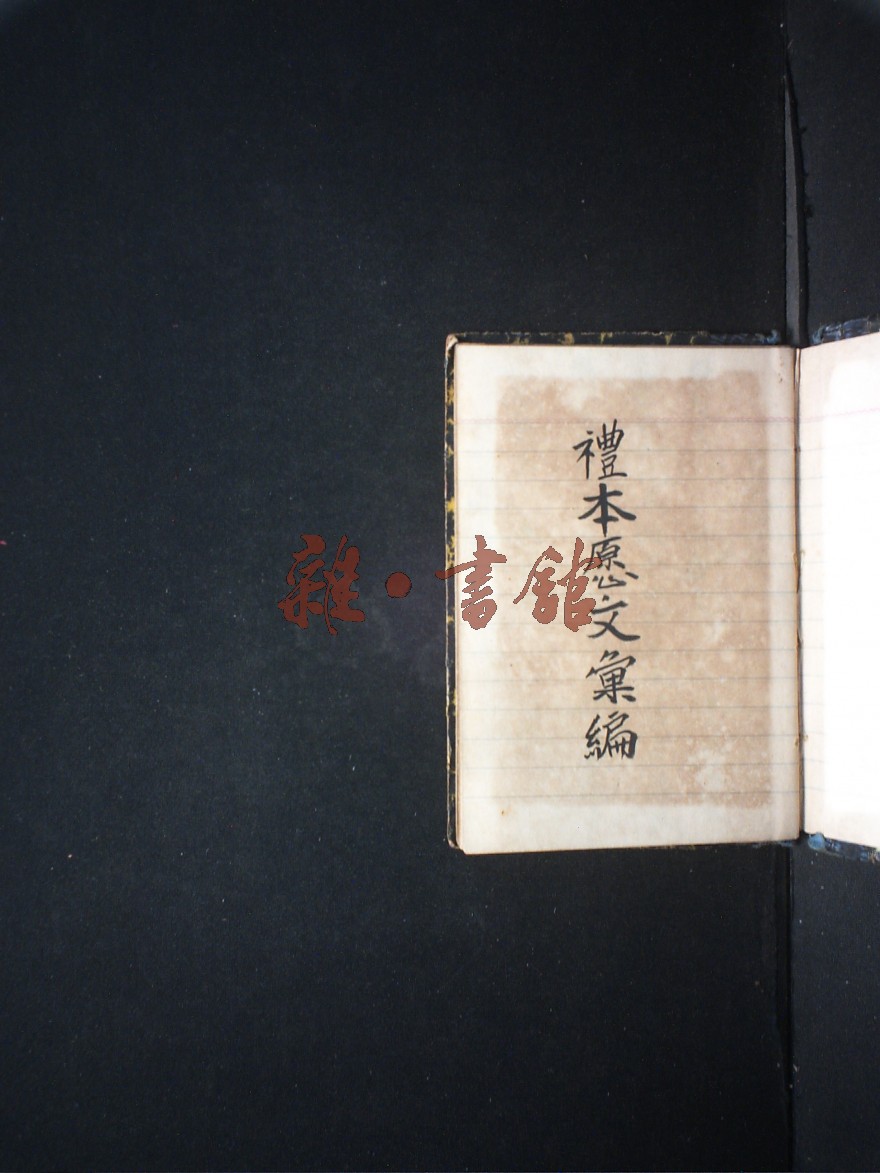 禮本愿文彙編
雜·書館